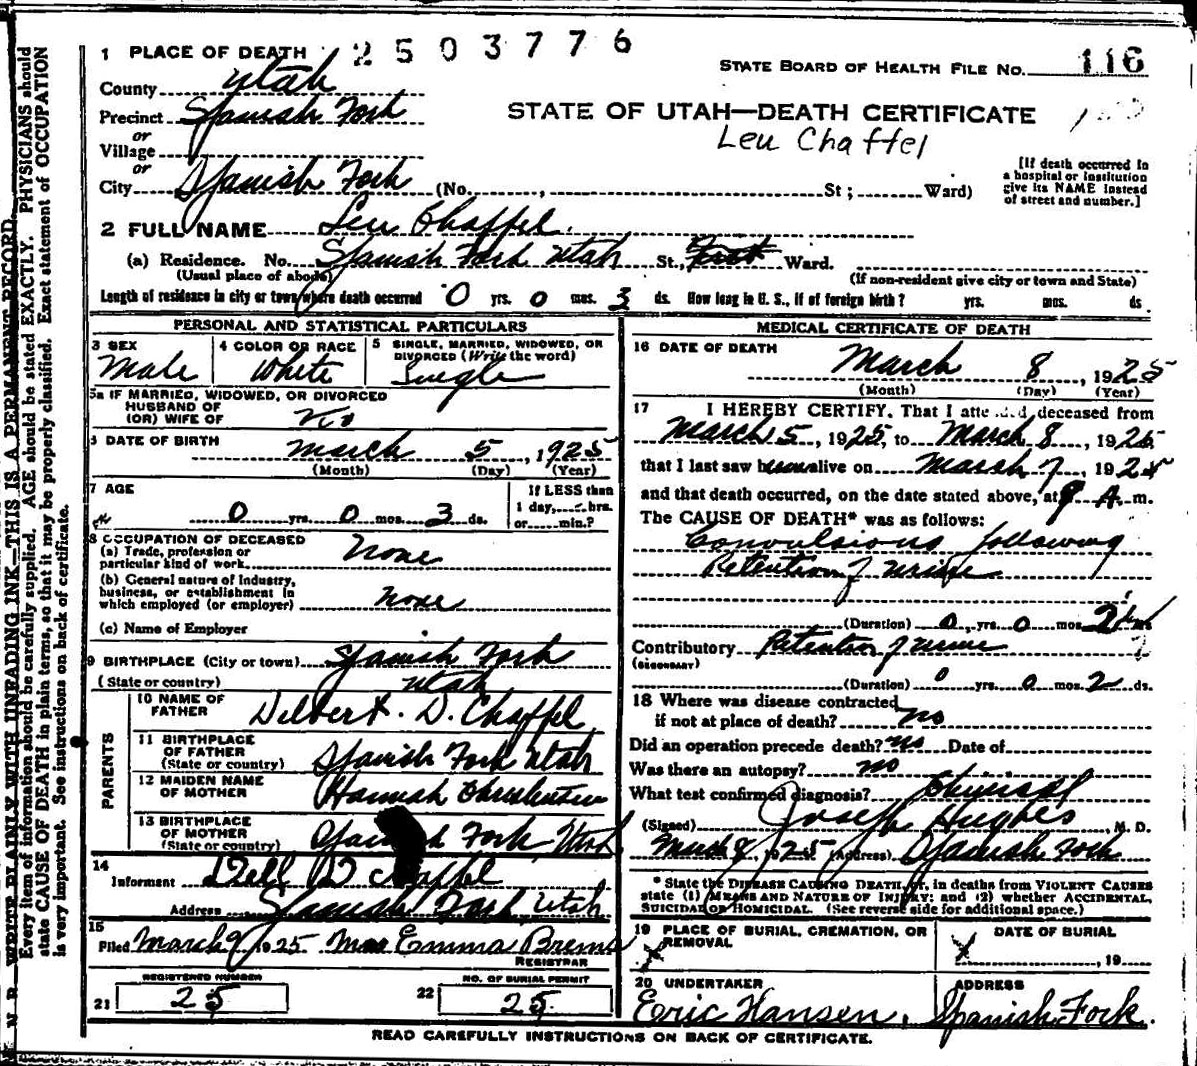 2503776
STATE BOARD OF HEALTH FILE No. 116
1 PLACE OF DEATH
County Utah
Precinct Spanish Fork
or
Village
or
City Spanish Fork (No. , St; Ward)
STATE OF UTAH—DEATH CERTIFICATE
Leu Chaffel
[If death occurred in
a hospital or institution
give its NAME instead
of street and number.]
2 FULL NAME Leu Chaffel
(a) Residence. No. Spanish Fork Utah St., Ward.
(Usual place of abode) (If non-resident give city or town and State)
Length of residence in city or town where death occurred 0 yrs. 0 mos. 3 ds. How long in U. S., if of foreign birth? yrs. mos. ds
PERSONAL AND STATISTICAL PARTICULARS
3 SEX Male
4 COLOR OR RACE White
5 SINGLE, MARRIED, WIDOWED, OR
DIVORCED (Write the word)
Single
5a IF MARRIED, WIDOWED, OR DIVORCED
HUSBAND OF
(OR) WIFE OF No
6 DATE OF BIRTH March 5, 1925
(Month) (Day) (Year)
7 AGE 0 yrs. 0 mos. 3 ds.
If LESS than
1 day, hrs.
or min.?
8 OCCUPATION OF DECEASED
(a) Trade, profession or
particular kind of work None
(b) General nature of Industry,
business, or establishment in
which employed (or employer) None
(c) Name of Employer
9 BIRTHPLACE (City or town) Spanish Fork
(State or country) Utah
PARENTS
10 NAME OF
FATHER Delbert. D. Chaffel
11 BIRTHPLACE
OF FATHER
(State or country) Spanish Fork Utah
12 MAIDEN NAME
OF MOTHER Hannah
13 BIRTHPLACE
OF MOTHER
(State or country) Spanish Fork, Utah
14
Informent Dell D Chaffel
Address Spanish Fork Utah
15
Filed March 9 1925 Mrs Emma Brems
REGISTRAR
REGISTERED NUMBER
21 25
NO. OF BURIAL PERMIT
22 25
MEDICAL CERTIFICATE OF DEATH
16 DATE OF DEATH
March 8, 1925
(Month) (Day) (Year)
17 I HEREBY CERTIFY, That I attended deceased from
March 5, 1925, to March 8, 1925
that I last saw h alive on March 7, 1925
and that death occurred, on the date stated above, at 9 A. m.
The CAUSE OF DEATH* was as follows:
Convulsions following
Retention of urine
(Duration) 0 yrs. 0 mos. 2
Contributory Retention of urine
(SECONDARY)
(Duration) 0 yrs. 0 mos. 2 ds.
18 Where was disease contracted
if not at place of death? no
Did an operation precede death? no Date of
Was there an autopsy? no
What test confirmed diagnosis?
(Signed) Joseph Hughes M. D.
March 8, 1925 (Address) Spanish Fork
* State the DISEASE CAUSING DEATH, or, in deaths from VIOLENT CAUSES
state (1) MEANS AND NATURE OF INJURY; and (2) whether ACCIDENTAL,
SUICIDAL OR HOMICIDAL. (See reverse side for additional space.)
19 PLACE OF BURIAL, CREMATION, OR
REMOVAL
X
DATE OF BURIAL
X , 19
20 UNDERTAKER
Eric Hansen,
ADDRESS
Spanish Fork.
READ CAREFULLY INSTRUCTIONS ON BACK OF CERTIFICATE.
N. B. WRITE PLAINLY WITH UNFADING INK—THIS IS A PERMANENT RECORD.
Every item of information should be carefully supplied. AGE should be stated EXACTLY. PHYSICIANS should
state CAUSE OF DEATH in plain terms, so that it may be properly classified. Exact statement of OCCUPATION
is very important. See instructions on back of certificate.